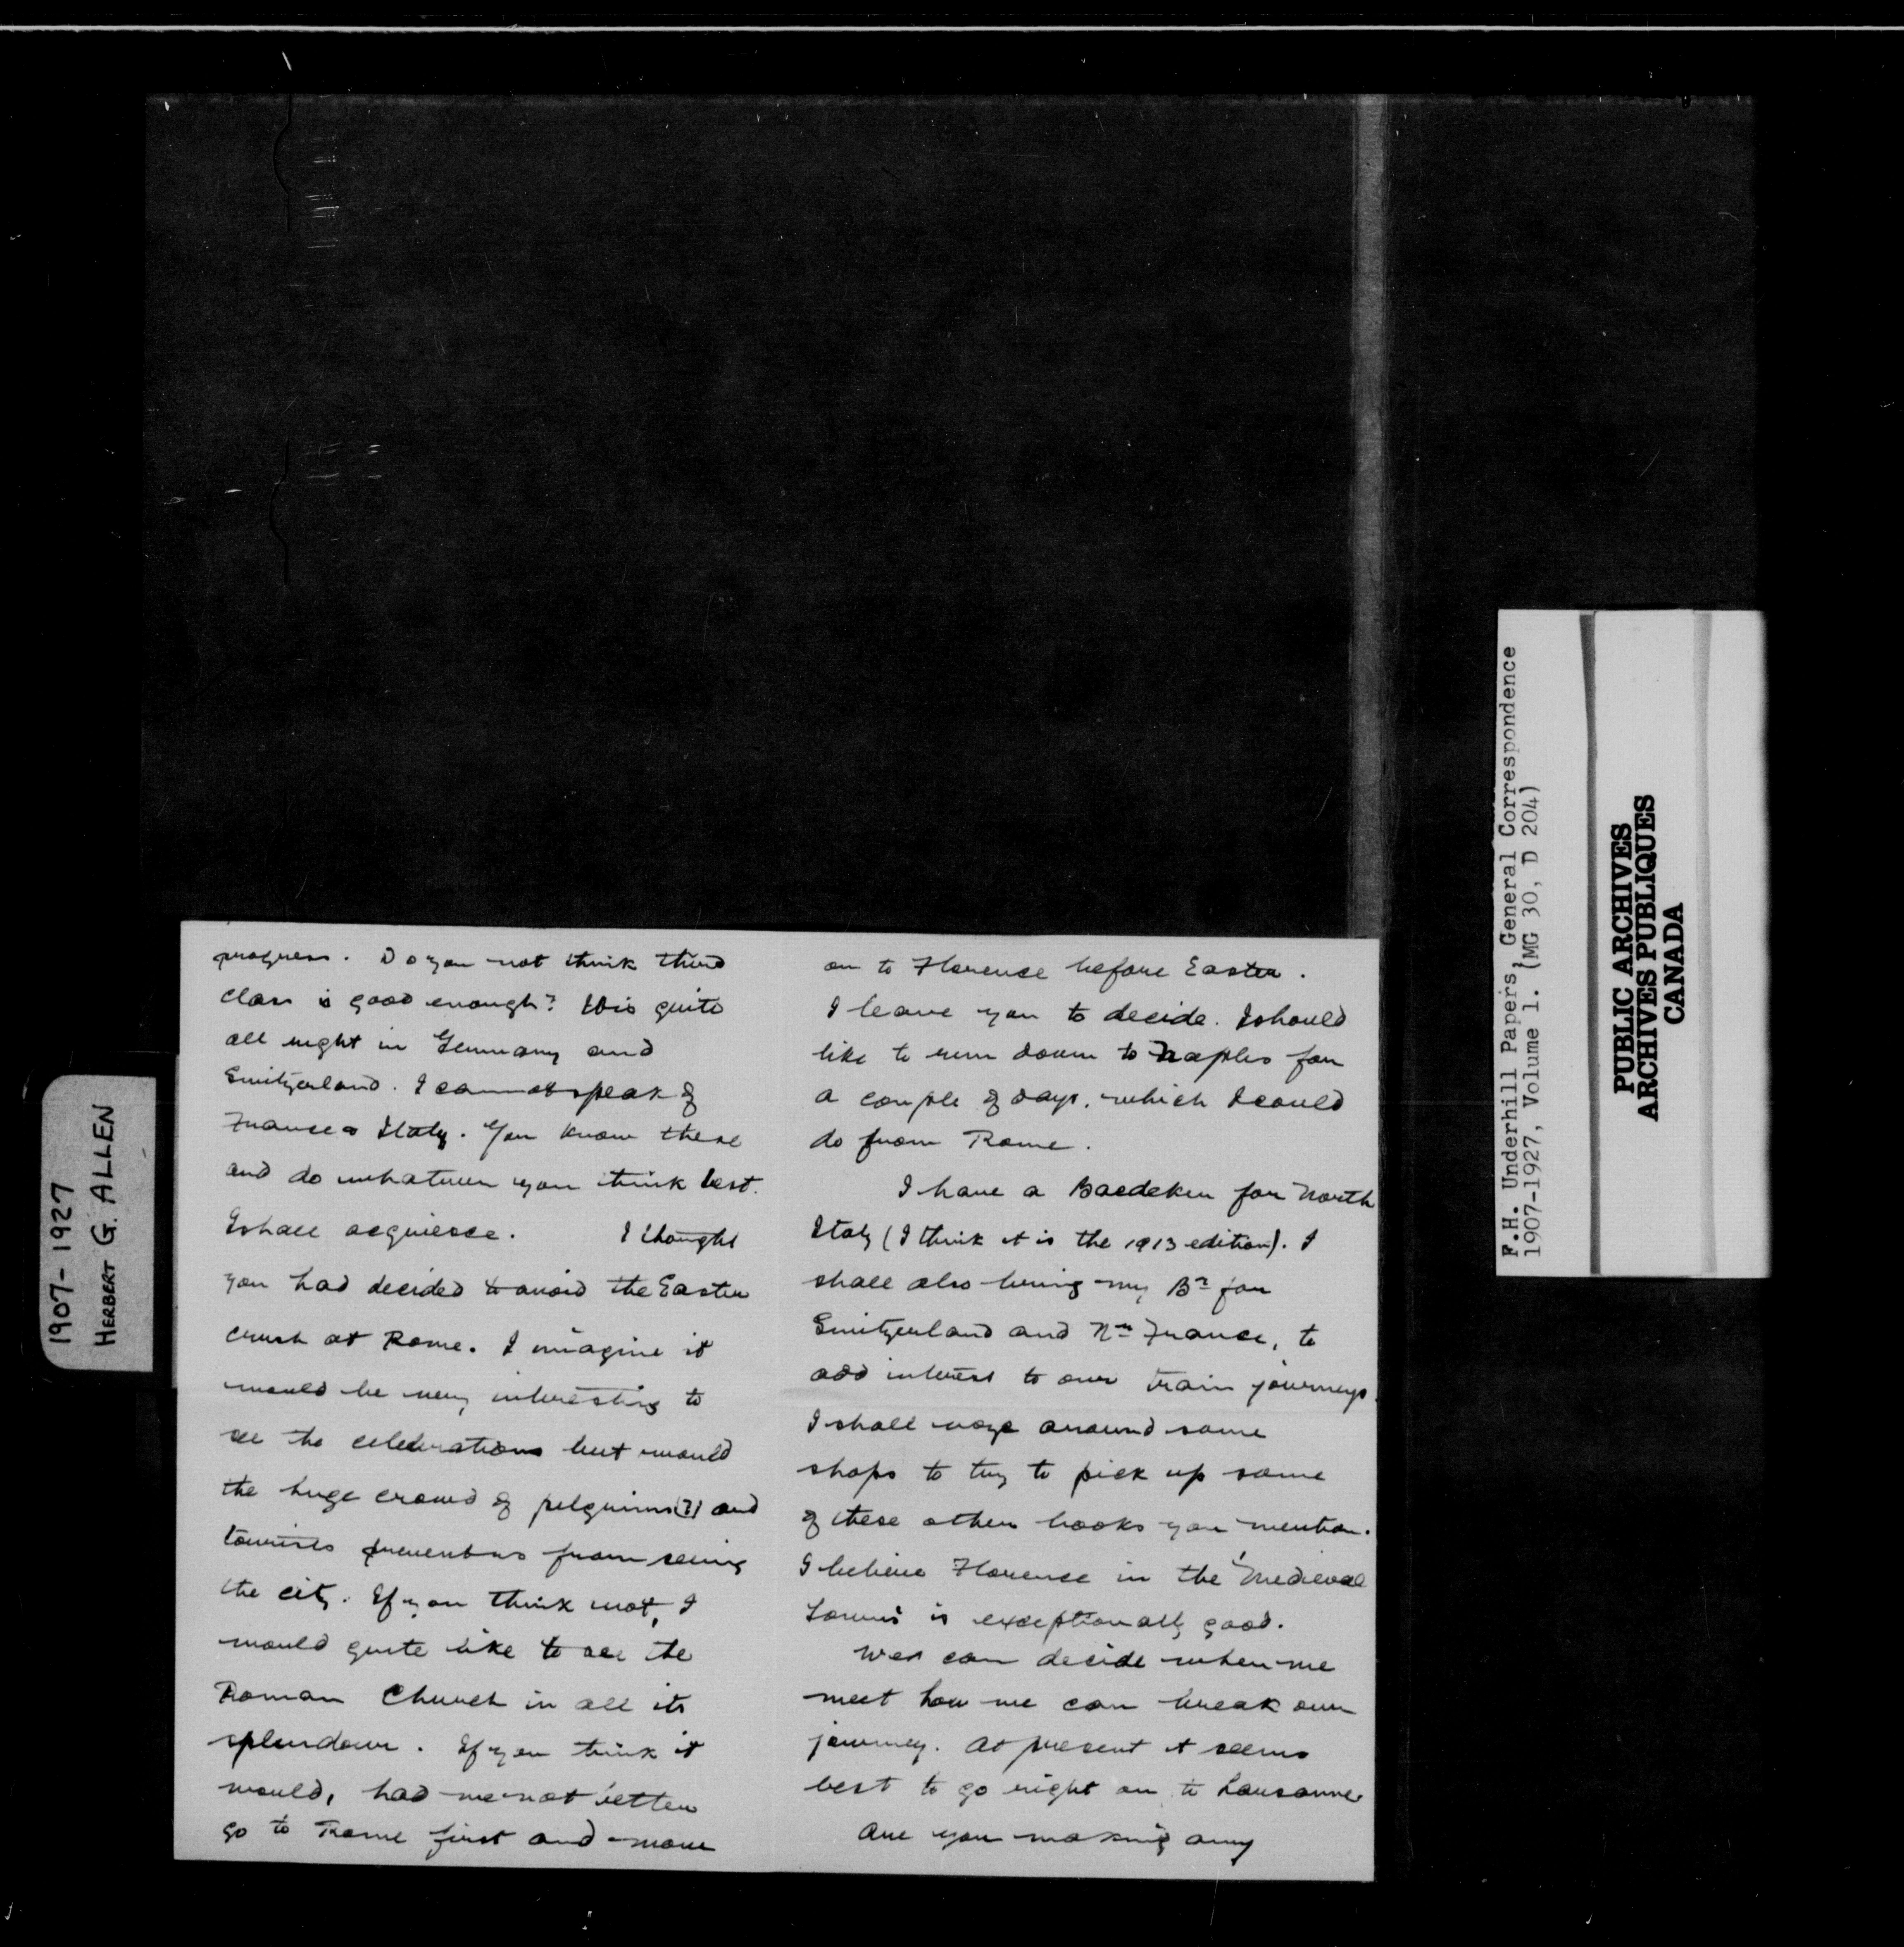 progress. Do you not think third
class is good enough? It is quite
all right in Germany and
Switzerland. I cannot speak of
France or Italy. You know these
and do whatever you think best.
I shall acquiesce. I thought
you had decided to avoid the Easter
crush at Rome. I imagine it
would be very interesting to
see the celebrations but would
the huge crowd of pilgrims(?) and
tourists prevent us from seeing
the city. If you think not, I
would quite like to see the
Roman Church in all its
splendour. If you think it
would, had we not better
go to Rome first and move
on to Florence before Easter.
I leave you to decide. I should
like to run down to Naples for
a couple of days, which I could
do from Rome.
I have a Baedeker for North
Italy (I think it is the 1913 edition). I
shall also bring my Br for
Switzerland and Nn France, to
add interest to our train journeys.
I shall around some
shops to try to pick up some
of these other books you mention.
I believe Florence in the 'Medieval
Towns' is exceptionally good.
We can decide when we
meet how we can break our
journey. At present it seems
best to go right on to Lausanne.
Are you making any
1907-1927
HERBERT G. ALLEN
F.H. Underhill Papers, General Correspondence
1907-1927, Volume 1. (MG 30, D 204)
PUBLIC ARCHIVES
ARCHIVES PUBLIQUES
CANADA